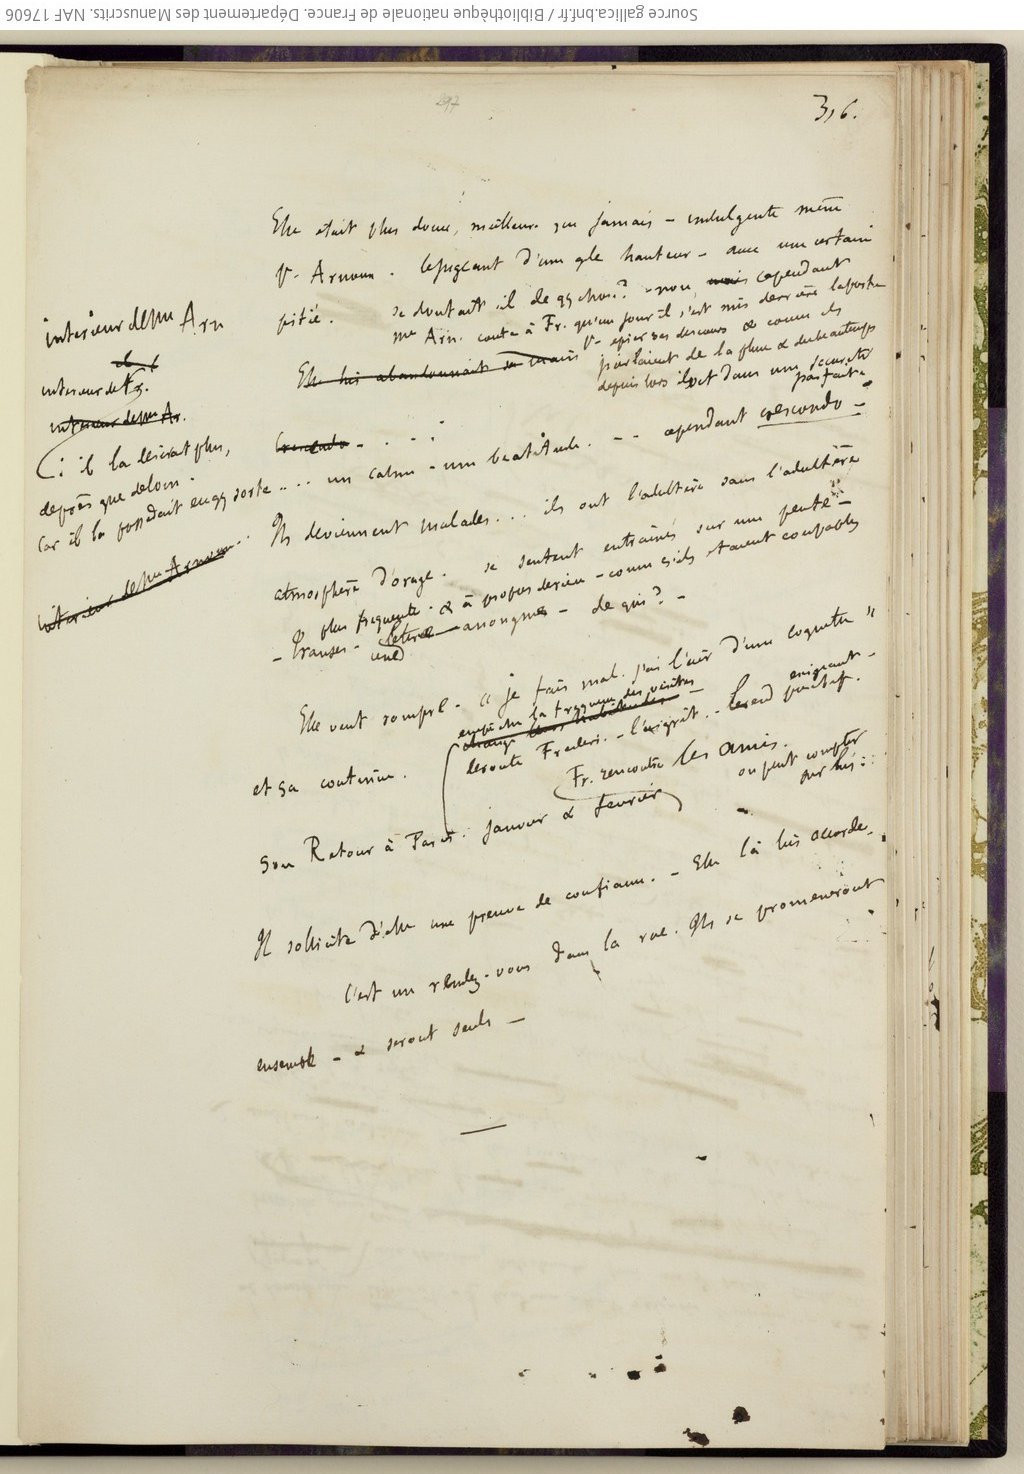 Source gallica.bnf.fr / Bibliothèque nationale de France. Département des Manuscrits. NAF 17606
297
316.
Elle était plus douce, meilleure que jamais – indulgente même
pr Arnoux. le jugeant d'une gde hauteur – avec une certaine
pitié. se doutait-il de qq chose? – non, mais cependant
me Arn. conte à Fr. qu'un jour il s'est mis derrière la porte
pr épier ses discours & comme ils
Elle lui abandonnait sa main
parlaient de la pluie & du beau temps
depuis lors il est dans une sécurité
parfaite.
Crescendo – . . .
un calme – une béatitude. – – cependant crescendo –
Ils deviennent malades... ils ont l'adultère sans l'adultère
atmosphère d'orage. se sentent entraînés sur une pente –
plus fréquente. & à propos de rien – comme s'ils étaient coupables
– Transes – lettre anonyme – de qui? –
une
Elle veut rompre. " je fais mal. j'ai l'air d'une coquette "
et ça continue.
empêcher la fréquence des visites
change leurs habitudes –
déroute Frederic. – l'aigrit. – le rend positif.
exigeant –
Fr. rencontre les amis.
on peut compter
sur lui :
Son Retour à Paris. janvier & février
Il sollicite d'elle une preuve de confiance. – Elle la lui accorde.
C'est un rendez-vous dans la rue. Ils se promèneront
ensemble – & seront seuls –
intérieur de me Arn
intérieur de Fr.
intérieur de me Ar.
: il la désirait plus,
de près que de loin.
Car il la possédait en qq sorte ....
intérieur de me Arnoux.